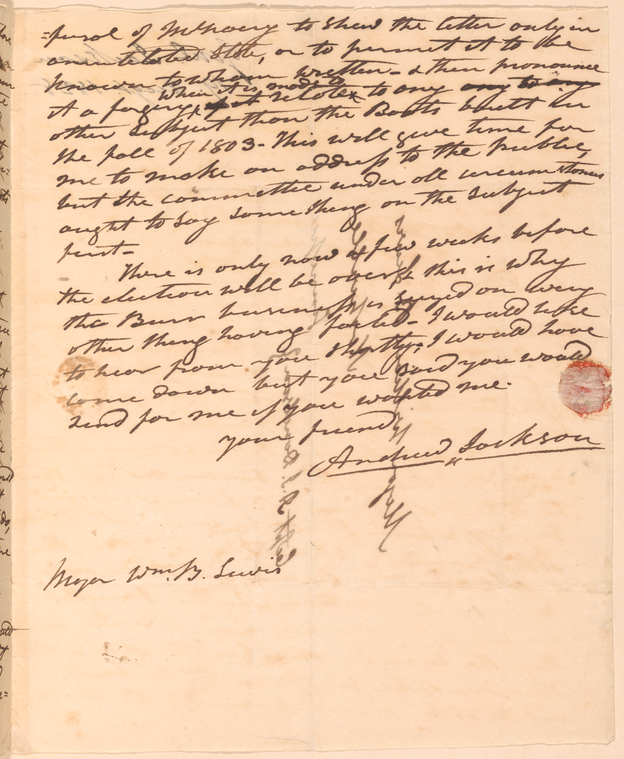 =fusal of McNairy to shew the letter only in
a mutilated State, or to permit it to be
known to whom written - & then pronounce
when it is made
it a forgery if it relates to any any to any
other subject than the Boats built in
the fall of 1803 - this will give time for
me to make an address to the Publick,
but the committee under all circumstances
ought to say something on the subject
first -
There is only now a few weeks before
the election will be over & this is why
the Burr business is seized on every
other thing having failed - I would like
to hear from you shortly, I would have
come down but you said you would
send for me if you wanted me.
your friend
Andrew Jackson
Major Wm. B. Lewis